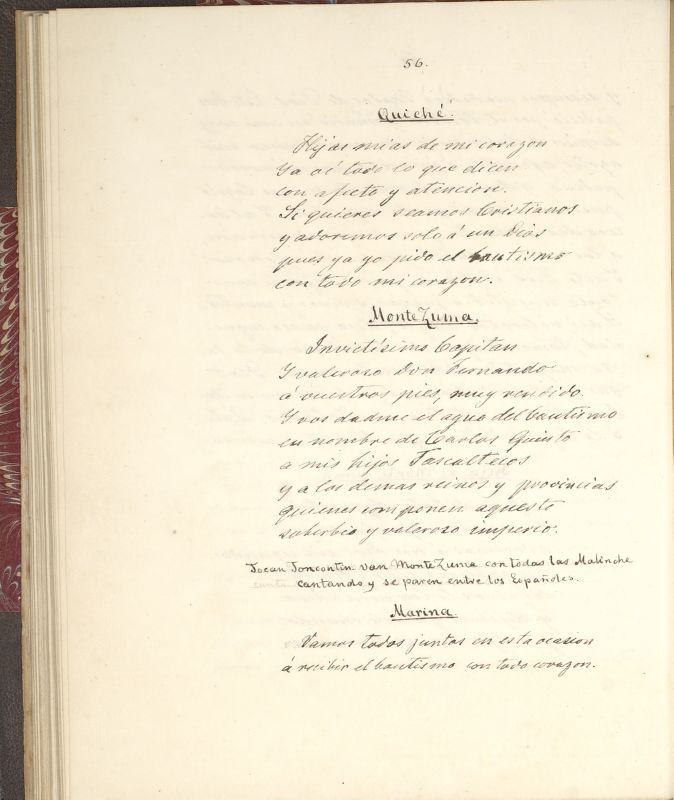 56.
Quiché.
Hijas mias de mi corazon
Ya oí todo lo que dicen
con afecto y atencion.
Si quieres seamos Cristianos
y adoremos solo á un Dios
pues ya yo pido el bautismo
con todo mi corazon.
MonteZuma.
Invictísimo Capitan
Y valeroso Don Fernando
á vuestros pies, muy rendido.
Y vos dadme el agua del bautismo
en nombre de Carlos Quinto
a mis hijos Tascaltecos
y a los demas reinos y provincias
quienes componen aqueste
suberbio y valeroso imperio.
Tocan Toncontin van MonteZuma con todas las Malinche
cantando y se paren entre los Españoles.
Marina
Vamos todos juntos en esta ocasion
á recibir el bautismo con todo corazon.